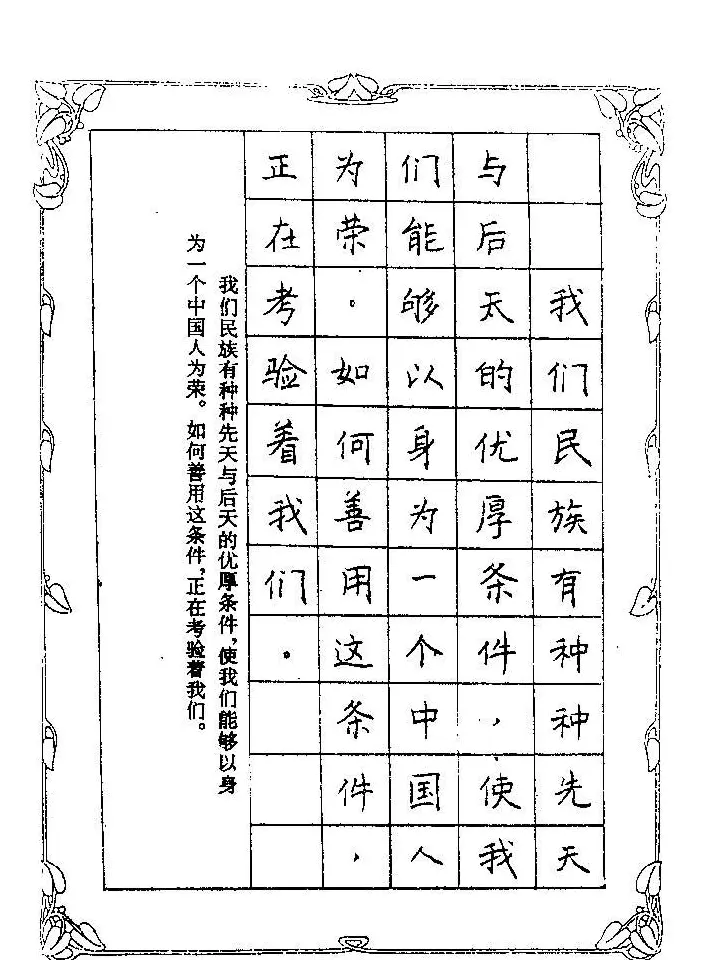 我们民族有种种先天
与后天的优厚条件，使我
们能够以身为一个中国人
为荣。如何善用这条件，
正在考验着我们。
我们民族有种种先天与后天的优厚条件，使我们能够以身
为一个中国人为荣。如何善用这条件，正在考验着我们。